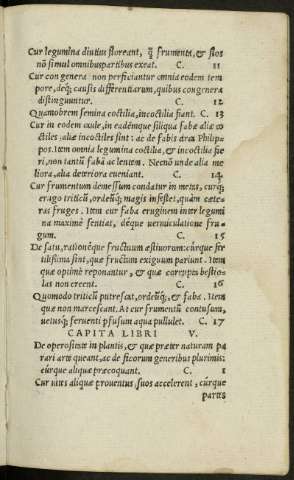 Cur legumina diutius floreant, q̃ frumenta, & flos
nõ simul omnibus partibus exeat. C. 11
Cur con genera non perficiantur omnia eodem tem
pore, deq; causis differentiarum, quibus congenera
distinguuntur. C. 12
Quamobrem semina coctilia, incoctilia fiant. C. 13
Cur in eodem caule, in eadémque siliqua fabæ aliæ co
ctiles: aliæ incoctiles sint: ac de fabis circa Philip
pos. Item omnia legumina coctilia, & incoctilia fie
ri, non tantũ fabã ac lentem. Necnõ unde alia me
liora, alia deteriora eueniant. C. 14
Cur frumentum demessum condatur in metas, curq;
erago triticũ, ordeũq; magis infestet, quàm cæte-
ras fruges. Item cur faba eruginem inter legumi
na maximè sentiat, déque vermiculatione frugu-
gum. C. 15
De satu, rationéque fructuum æstiuorum: cúrque ster
tilissima sint, quæ fructum exiguum pariunt. Item
quæ optimè reponantur, & quæ correpta bestio-
las non creent. C. 16
Quomodo triticũ putrescat, ordeũq; & faba. Item
quæ non marcescant. At cur frumentũ contusum,
uetusq; feruenti pfusum aqua pullulet. C. 17
CAPITA LIBRI V.
De operositate in plantis, & quæ præter naturam pa
rari arte queant, ac de ficorum generibus plurimis:
cúrque aliquæ præcoquant. C. 1
Cur uites aliquæ prouentus suos accelerent, cúrque
partes